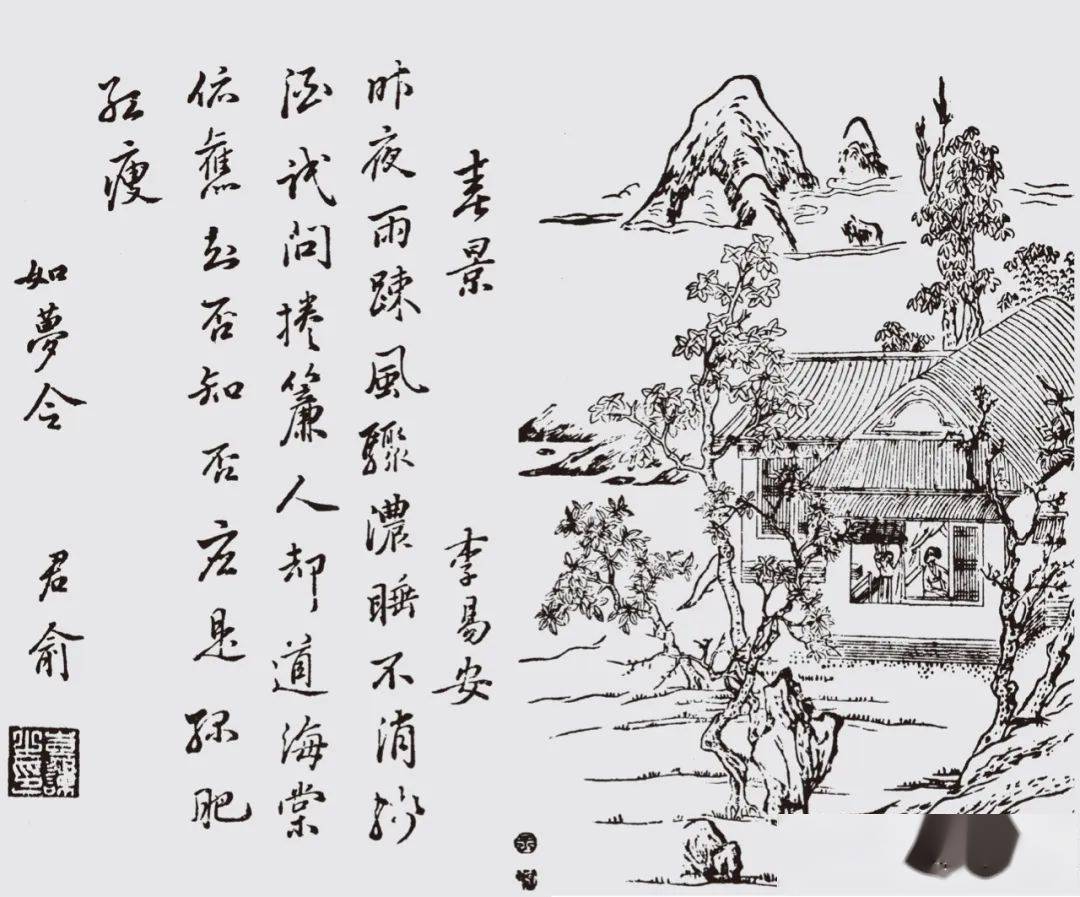 春景 李易安
昨夜雨踈風驟濃睡不消殘
酒試問捲簾人却道海棠
依舊知否知否應是綠肥
紅瘦
如夢令 君俞